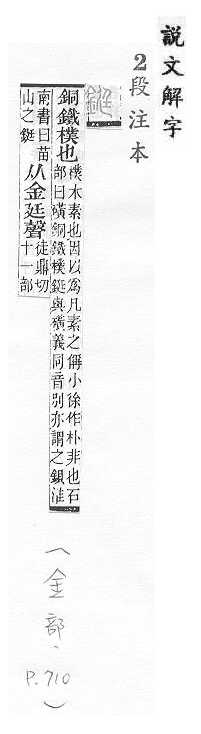 說文解字
2段注本
鋌
銅鐵樸也樸木素也因以爲凡素之偁小徐作朴非也石
部曰磺銅鐵樸鋌與磺義同音別亦謂之鋇淮
南書曰苗
山之鋌从金廷聲徒鼎切
十一部
(金部、
P.710)